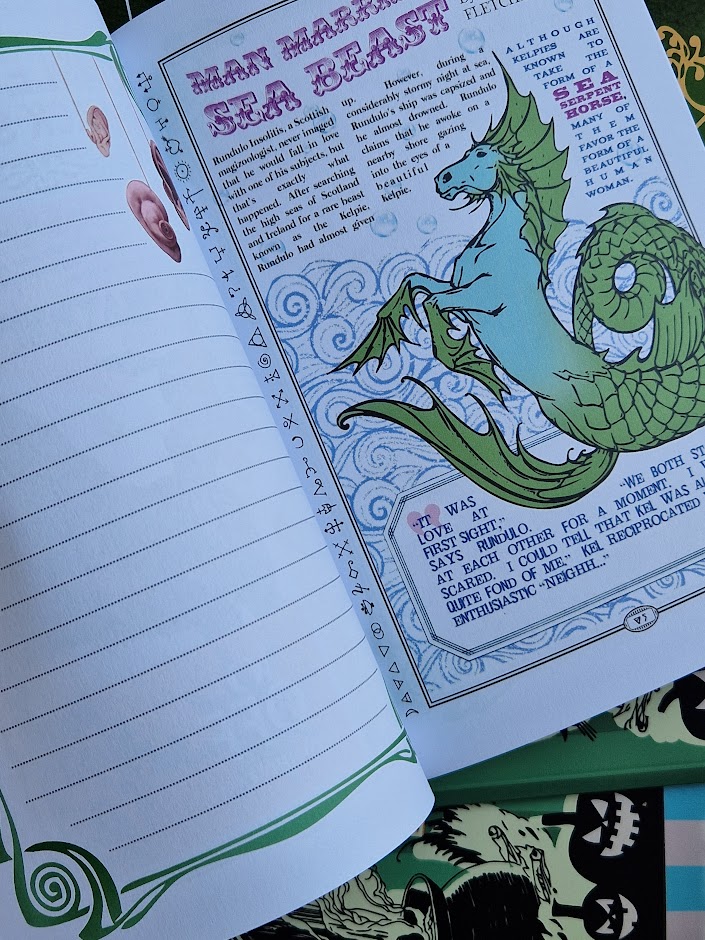 MAN MARRIES
SEA BEAST
FLETCH
Rundulo Insolitis, a Scottish
magizoologist, never imagined
that he would fall in love
with one of his subjects, but
that's exactly what
happened. After searching
the high seas of Scotland
and Ireland for a rare beast
known as the Kelpie,
Rundulo had almost given
up. However, during a
considerably stormy night at sea,
Rundulo's ship was capsized and
he almost drowned. Rundulo
claims that he awoke on a
nearby shore gazing
into the eyes of a
beautiful
Kelpie.
ALTHOUGH
KELPIES ARE
KNOWN TO
TAKE THE
FORM OF A
SEA
SERPENT
HORSE,
MANY OF
THEM
FAVOR THE
FORM OF A
BEAUTIFUL
HUMAN
WOMAN.
"IT WAS
LOVE AT
FIRST SIGHT,"
SAYS RUNDULO. "WE BOTH ST
AT EACH OTHER FOR A MOMENT. I W
SCARED. I COULD TELL THAT KEL WAS AL
QUITE FOND OF ME." KEL RECIPROCATED
ENTHUSIASTIC "NEIGHH..."